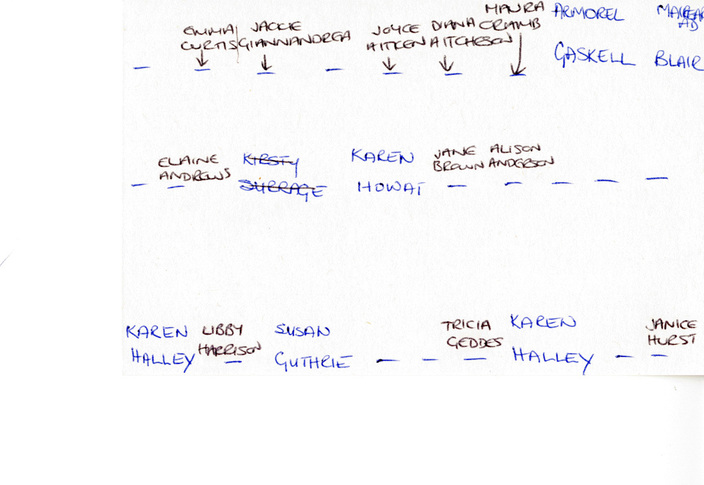 MAURA ARMOREL
EMMA JACKIE JOYCE DIANA CRAMB
CURTIS GIANNANDREA AITKEN AITCHESON
GASKELL BLAIR
ELAINE KIRSTY KAREN JANE ALISON
ANDREWS BROWN ANDERSON
HOWAT
KAREN LIBBY SUSAN TRICIA KAREN JANICE
HALLEY HARRISON GUTHRIE GEDDES HALLEY HURST